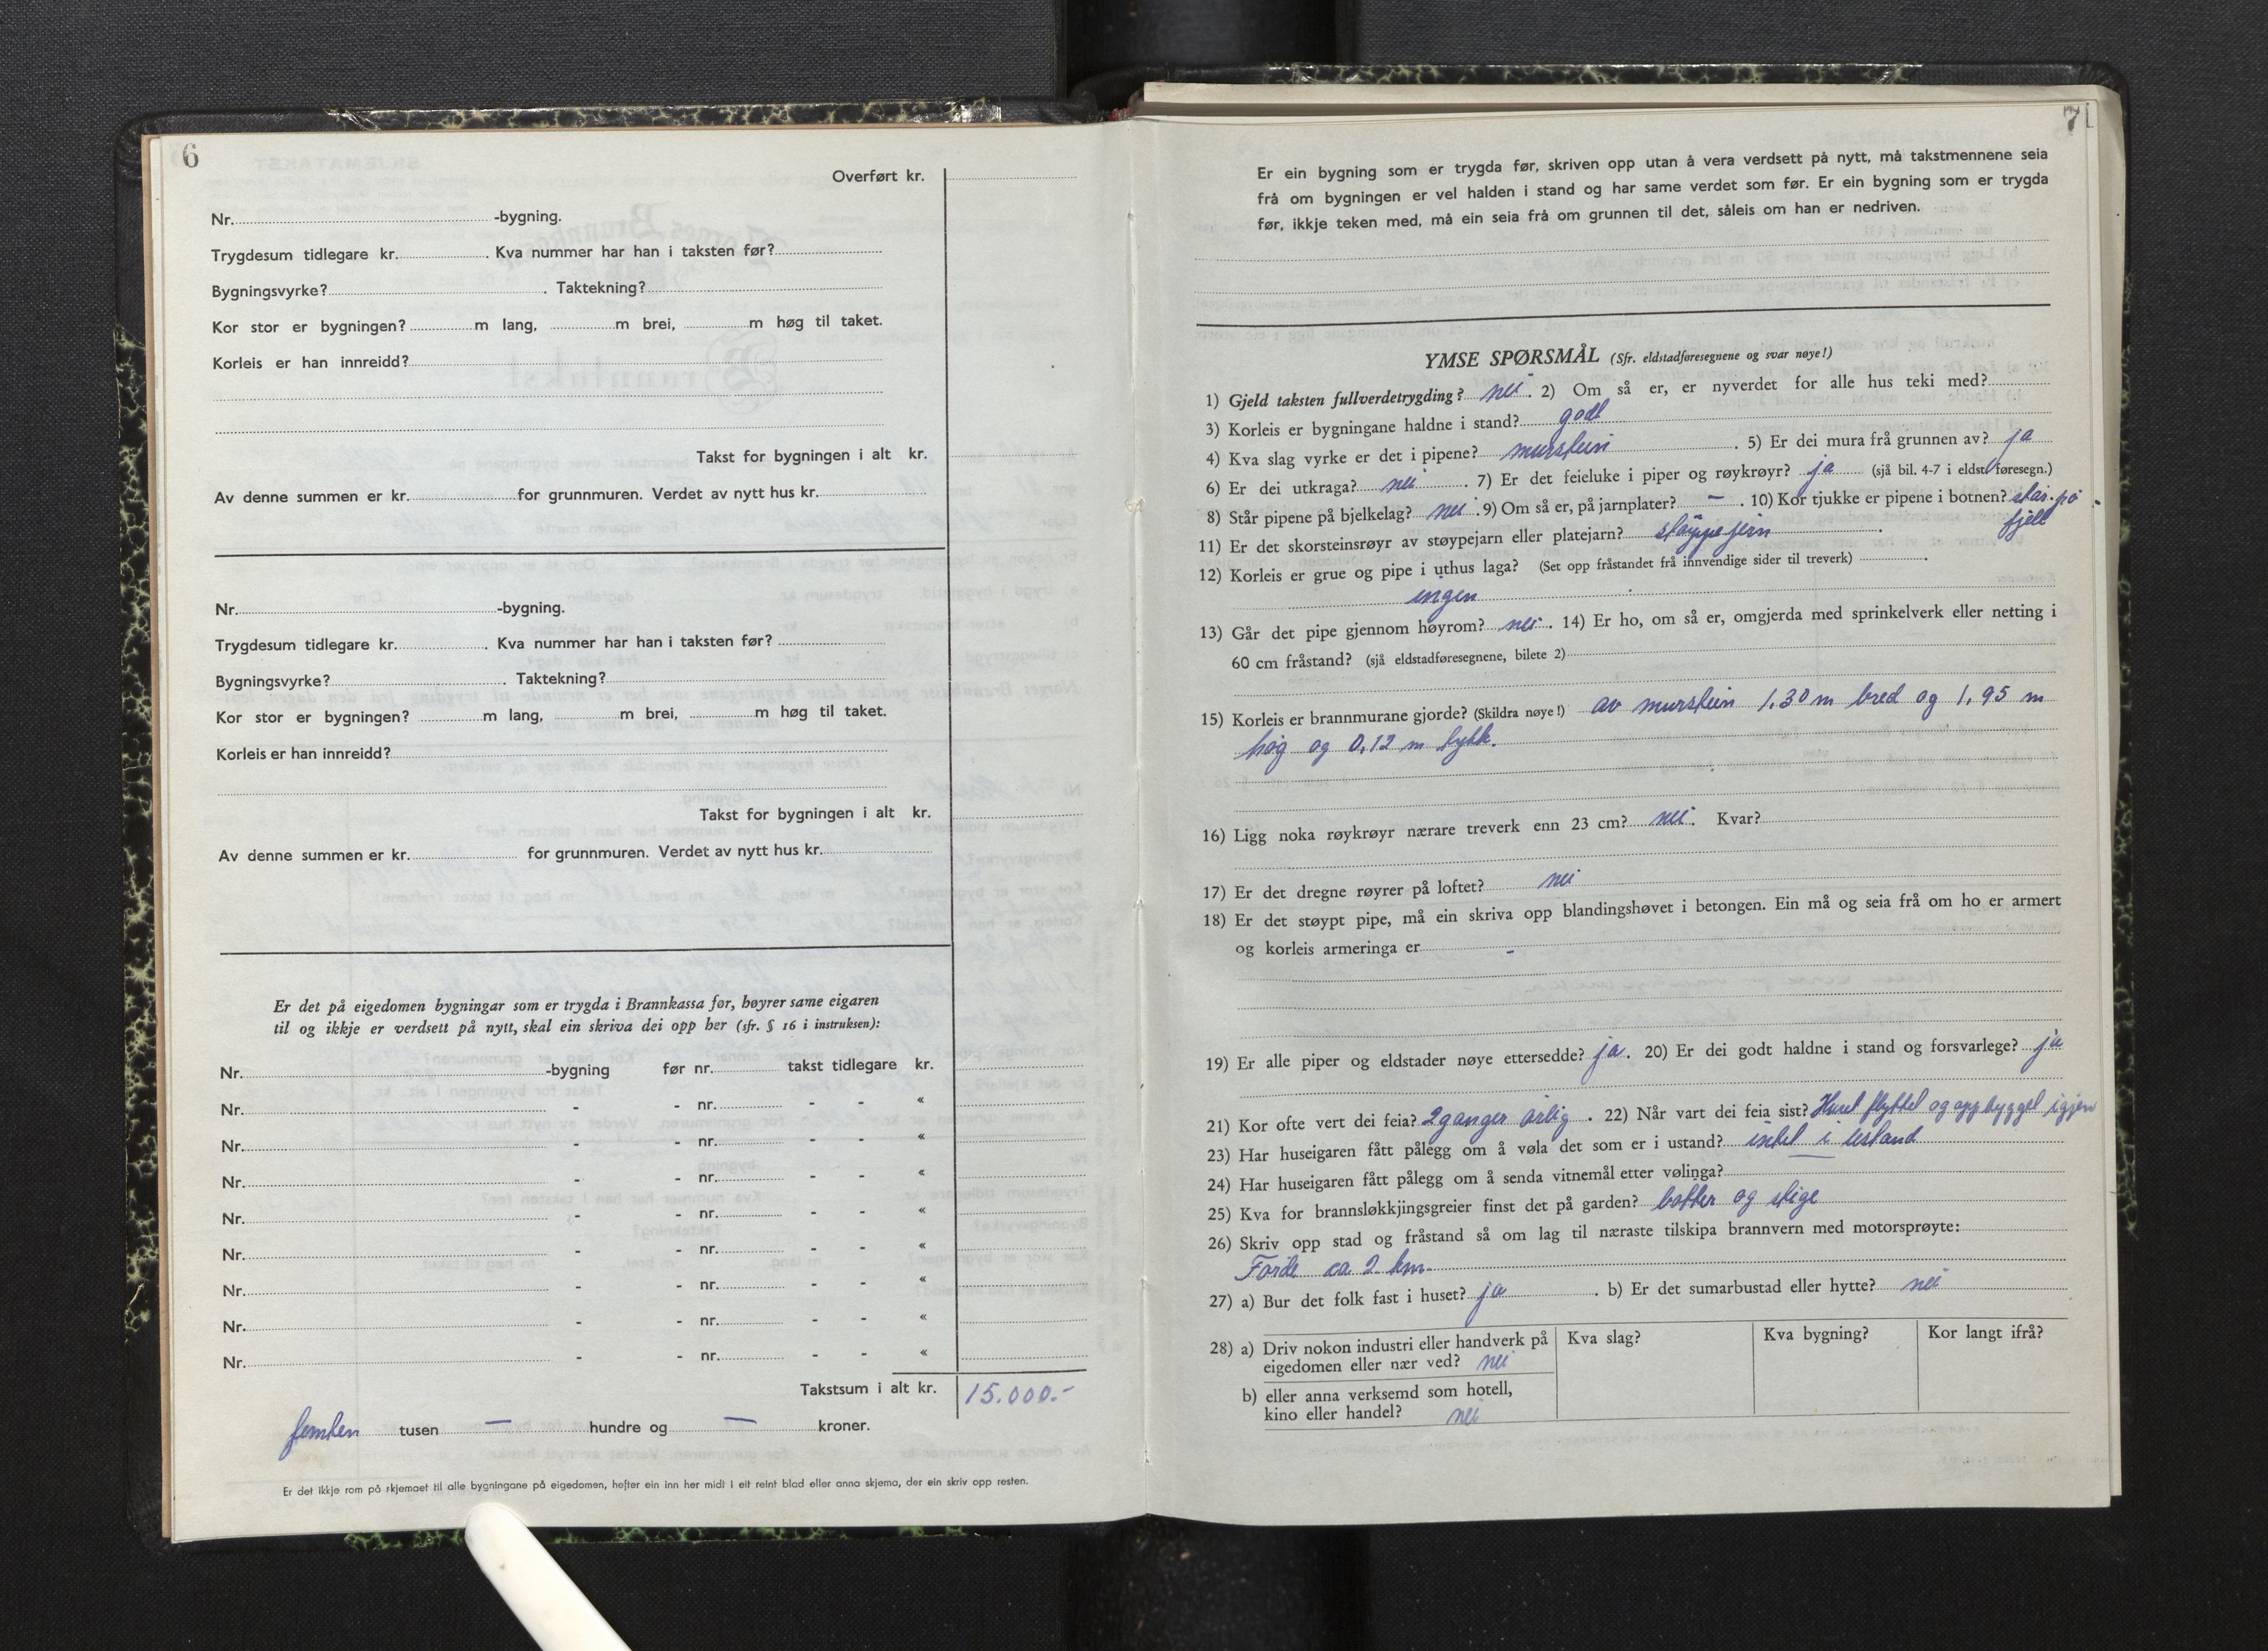 6
Overført kr.
Nr. -bygning.
Trygdesum tidlegare kr. . Kva nummer har han i taksten før?
Bygningsvyrke? . Taktekning?
Kor stor er bygningen? m lang, m brei, m høg til taket.
Korleis er han innreidd?
Takst for bygningen i alt kr.
Av denne summen er kr. for grunnmuren. Verdet av nytt hus kr.
Nr. -bygning.
Trygdesum tidlegare kr. . Kva nummer har han i taksten før?
Bygningsvyrke? . Taktekning?
Kor stor er bygningen? m lang, m brei, m høg til taket.
Korleis er han innreidd?
Takst for bygningen i alt kr.
Av denne summen er kr. for grunnmuren. Verdet av nytt hus kr.
Er det på eigedomen bygningar som er trygda i Brannkassa før, høyrer same eigaren
til og ikkje er verdsett på nytt, skal ein skriva dei opp her (sfr. § 16 i instruksen):
Nr. -bygning før nr. takst tidlegare kr.
Nr. - - nr. - - «
Nr. - - nr. - - «
Nr. - - nr. - - «
Nr. - - nr. - - «
Nr. - - nr. - - «
Nr. - - nr. - - «
Nr. - - nr. - - «
Nr. - - nr. - - «
Takstsum i alt kr. 15.000.-
femten tusen — hundre og — kroner.
Er det ikkje rom på skjemaet til alle bygningane på eigedomen, hefter ein inn her midt i eit reint blad eller anna skjema, der ein skriv opp resten.
7
Er ein bygning som er trygda før, skriven opp utan å vera verdsett på nytt, må takstmennene seia
frå om bygningen er vel halden i stand og har same verdet som før. Er ein bygning som er trygda
før, ikkje teken med, må ein seia frå om grunnen til det, såleis om han er nedriven.
YMSE SPØRSMÅL (Sfr. eldstadføresegnene og svar nøye!)
1) Gjeld taksten fullverdetrygding? nei. 2) Om så er, er nyverdet for alle hus teki med?
3) Korleis er bygningane haldne i stand? godt
4) Kva slag vyrke er det i pipene? murstein . 5) Er dei mura frå grunnen av? ja
6) Er dei utkraga? nei . 7) Er det feieluke i piper og røykrøyr? ja (sjå bil. 4-7 i eldst.føresegn.)
8) Står pipene på bjelkelag? nei . 9) Om så er, på jarnplater? — . 10) Kor tjukke er pipene i botnen? står på
fjell
11) Er det skorsteinsrøyr av støypejarn eller platejarn? støypejern .
12) Korleis er grue og pipe i uthus laga? (Set opp fråstandet frå innvendige sider til treverk) .
ingen
13) Går det pipe gjennom høyrom? nei . 14) Er ho, om så er, omgjerda med sprinkelverk eller netting i
60 cm fråstand? (sjå eldstadføresegnene, bilete 2)
15) Korleis er brannmurane gjorde? (Skildra nøye!) av murstein 1.30 m bred og 1,95 m
høg og 0,12 m tykk.
16) Ligg noka røykrøyr nærare treverk enn 23 cm? nei. Kvar?
17) Er det dregne røyrer på loftet? nei
18) Er det støypt pipe, må ein skriva opp blandingshøvet i betongen. Ein må og seia frå om ho er armert
og korleis armeringa er -
19) Er alle piper og eldstader nøye ettersedde? ja. 20) Er dei godt haldne i stand og forsvarlege? ja
21) Kor ofte vert dei feia? 2 ganger årlig . 22) Når vart dei feia sist? Huset flyttet og oppbygget igjen
23) Har huseigaren fått pålegg om å vøla det som er i ustand? intet i ustand
24) Har huseigaren fått pålegg om å senda vitnemål etter vølinga?
25) Kva for brannsløkkjingsgreier finst det på garden? bøtter og stige
26) Skriv opp stad og fråstand så om lag til næraste tilskipa brannvern med motorsprøyte:
Førde ca 2 km.
27) a) Bur det folk fast i huset? ja . b) Er det sumarbustad eller hytte? nei
28) a) Driv nokon industri eller handverk på Kva slag? Kva bygning? Kor langt ifrå?
eigedomen eller nær ved? nei
b) eller anna verksemd som hotell,
kino eller handel? nei